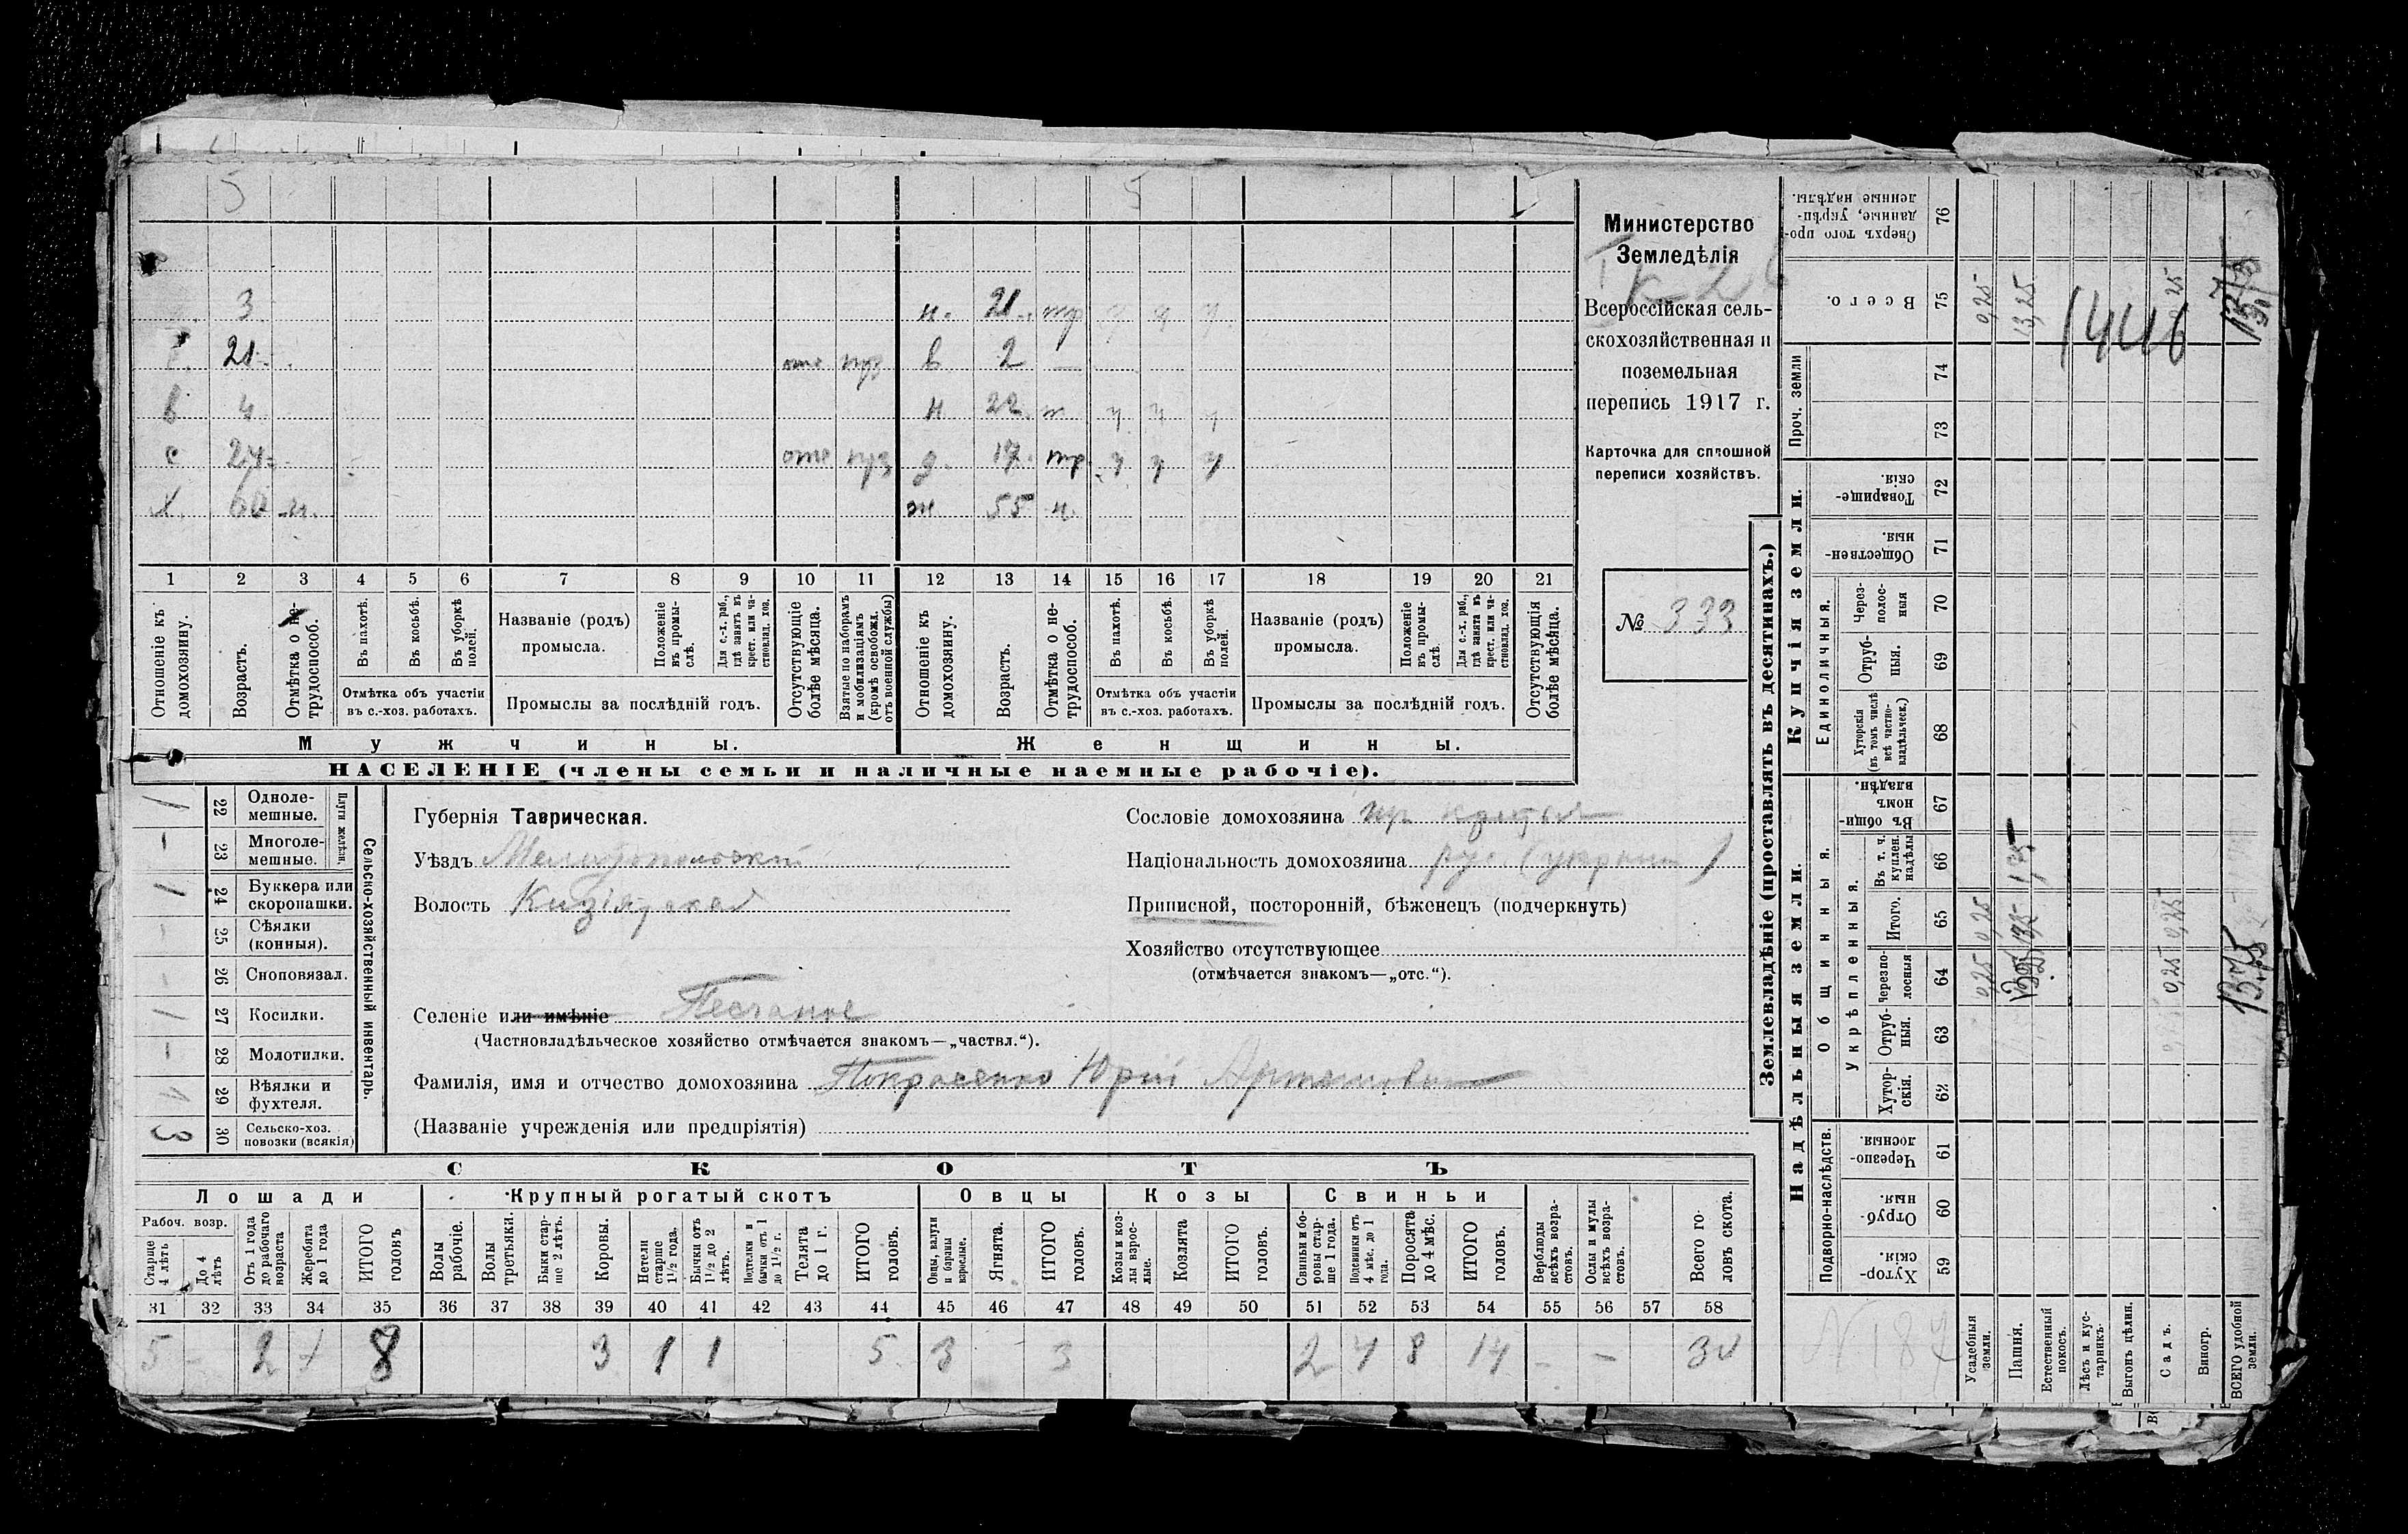 5 5
3 н. 21 тр у у у
21 отс прз в 2 —
в 4 н 22 т у у у
с 24 отс прз д. 17 тр у у у
х. 60 н. ж. 55 н.
1 2 3 4 5 6 7 8 9 10 11 12 13 14 15 16 17 18 19 20 21
Отношеніе къ домохозяину.
Возрастъ.
Отмѣтка о не-трудоспособ.
Въ пахотѣ.
Въ косьбѣ.
Въ уборкѣ полей.
Отмѣтка объ участіи въ с.-хоз. работахъ.
Названіе (родъ) промысла.
Положеніе въ промы-слѣ.
Для с.-х. раб., гдѣ занятъ въ крест. или ча-стновлад. хоз.
Промыслы за послѣдній годъ.
Отсутствующіе болѣе мѣсяца.
Взятые по наборамъ и мобилизаціямъ (кромѣ освобожд. отъ военной службы)
Отношеніе къ домохозяину.
Возрастъ.
Отмѣтка о не-трудоспособ.
Въ пахотѣ.
Въ косьбѣ.
Въ уборкѣ полей.
Отмѣтка объ участіи въ с.-хоз. работахъ.
Названіе (родъ) промысла.
Положеніе въ промы-слѣ.
Для с.-х. раб., гдѣ занята въ крест. или ча-стновлад. хоз.
Промыслы за послѣдній годъ.
Отсутствующія болѣе мѣсяца.
Мужчины. Женщины.
НАСЕЛЕНІЕ (члены семьи и наличные наемные рабочіе).
Министерство
Земледѣлія
Всероссійская сель-
скохозяйственная и
поземельная
перепись 1917 г.
Карточка для сплошной
переписи хозяйствъ.
№ 333
Сельско-хозяйственный инвентарь.
Плуги желѣзн.
1 22 Одноле-мешные.
- 23 Многоле-мешные.
1 24 Буккера или скоропашки.
- 25 Сѣялки (конныя).
- 26 Сноповязал.
1 27 Косилки.
- 28 Молотилки.
1 29 Вѣялки и фухтеля.
3 30 Сельско-хоз. повозки (всякія)
Губернія Таврическая.
Уѣздъ Мелитопольскій
Волость Кизіярская
Селеніе или имѣніе Песчаное
(Частновладѣльческое хозяйство отмѣчается знакомъ—„частвл.“).
Фамилія, имя и отчество домохозяина Покрасенко Юрій Артемовичъ
(Названіе учрежденія или предпріятія)
Сословіе домохозяина
Національность домохозяина рус. (украин )
Приписной, посторонній, бѣженецъ (подчеркнуть)
Хозяйство отсутствующее
(отмѣчается знакомъ—„отс.“).
СКОТЪ
Лошади Крупный рогатый скотъ Овцы Козы Свиньи
Рабоч. возр.
Старше 4 лѣтъ
До 4 лѣтъ
Отъ 1 года до рабочаго возраста
Жеребята до 1 года
ИТОГО головъ
Волы рабочіе.
Волы третьяки.
Быки стар-ше 2 лѣтъ.
Коровы.
Нетели старше 1½ года.
Бычки отъ 1½ до 2 лѣтъ.
Подтелки и бычки отъ 1 до 1½ г.
Телята до 1 г.
ИТОГО головъ.
Овцы, валухи и бараны взрослые.
Ягнята.
ИТОГО головъ.
Козы и коз-лы взрос-лые.
Козлята
ИТОГО головъ.
Свиньи и бо-ровы стар-ше 1 года.
Подсвинки отъ 4 мѣс. до 1 года.
Поросята до 4 мѣс.
ИТОГО головъ.
Верблюды всѣхъ возра-стовъ.
Ослы и мулы всѣхъ возра-стовъ.
Всего го-ловъ скота.
31 32 33 34 35 36 37 38 39 40 41 42 43 44 45 46 47 48 49 50 51 52 53 54 55 56 57 58
5 - 2 1 8 3 1 1 5 3 - 3 2 4 8 14 - - 30
Землевладѣніе (проставлять въ десятинахъ.)
Надѣльныя земли. Купчія земли.
Подворно-наслѣдств.
Общинныя.
Укрѣпленныя.
Единоличныя.
Проч. земли
Сверхъ того про-данные, укрѣп-ленные надѣлы. 76
Всего. 75
74
73
Товарище-скія. 72
Обществен-ныя. 71
Через-полос-ныя 70
Отруб-ныя. 69
Хуторскія (въ томъ числѣ всѣ частно-владѣльческ.) 68
Въ общи-номъ владѣн. 67
Въ т. ч. куплен. надѣлы 66
Итого. 65
Черезпо-лосныя 64
Отруб-ныя. 63
Хутор-скія. 62
Черезпо-лосныя 61
Отруб-ныя. 60
Хутор-скія. 59
Усадебныя земли. 0,25 0,25 0,25
Пашня. 13,25 13,25
Естественный покосъ.
Лѣсъ и кус-тарникъ.
Выгонъ цѣлин.
Садъ. 0,25 0,25 0,25
Виногр.
ВСЕГО удобной земли. 13,75
1446
N 187